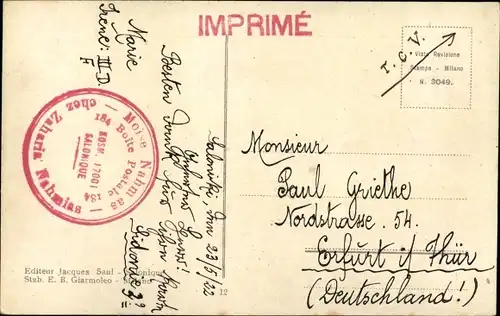 IMPRIMÉ
T. C. V.
Visto Revisione
Stampa - Milano
N. 3049.
Marie
Irene: III D.
F
Moise Nahmias — chez Zaharia Nahmias —
184 Boîte Postale 184
SALONIQUE
Saloniki, den 23/5/22
Besten Dank für
Monsieur
Paul Griethe
Nordstrasse. 54.
Erfurt i/ Thür
(Deutschland!)
Editeur Jacques Saul - Salonique
Stab. E. B. Giarmoleo - Milano
12